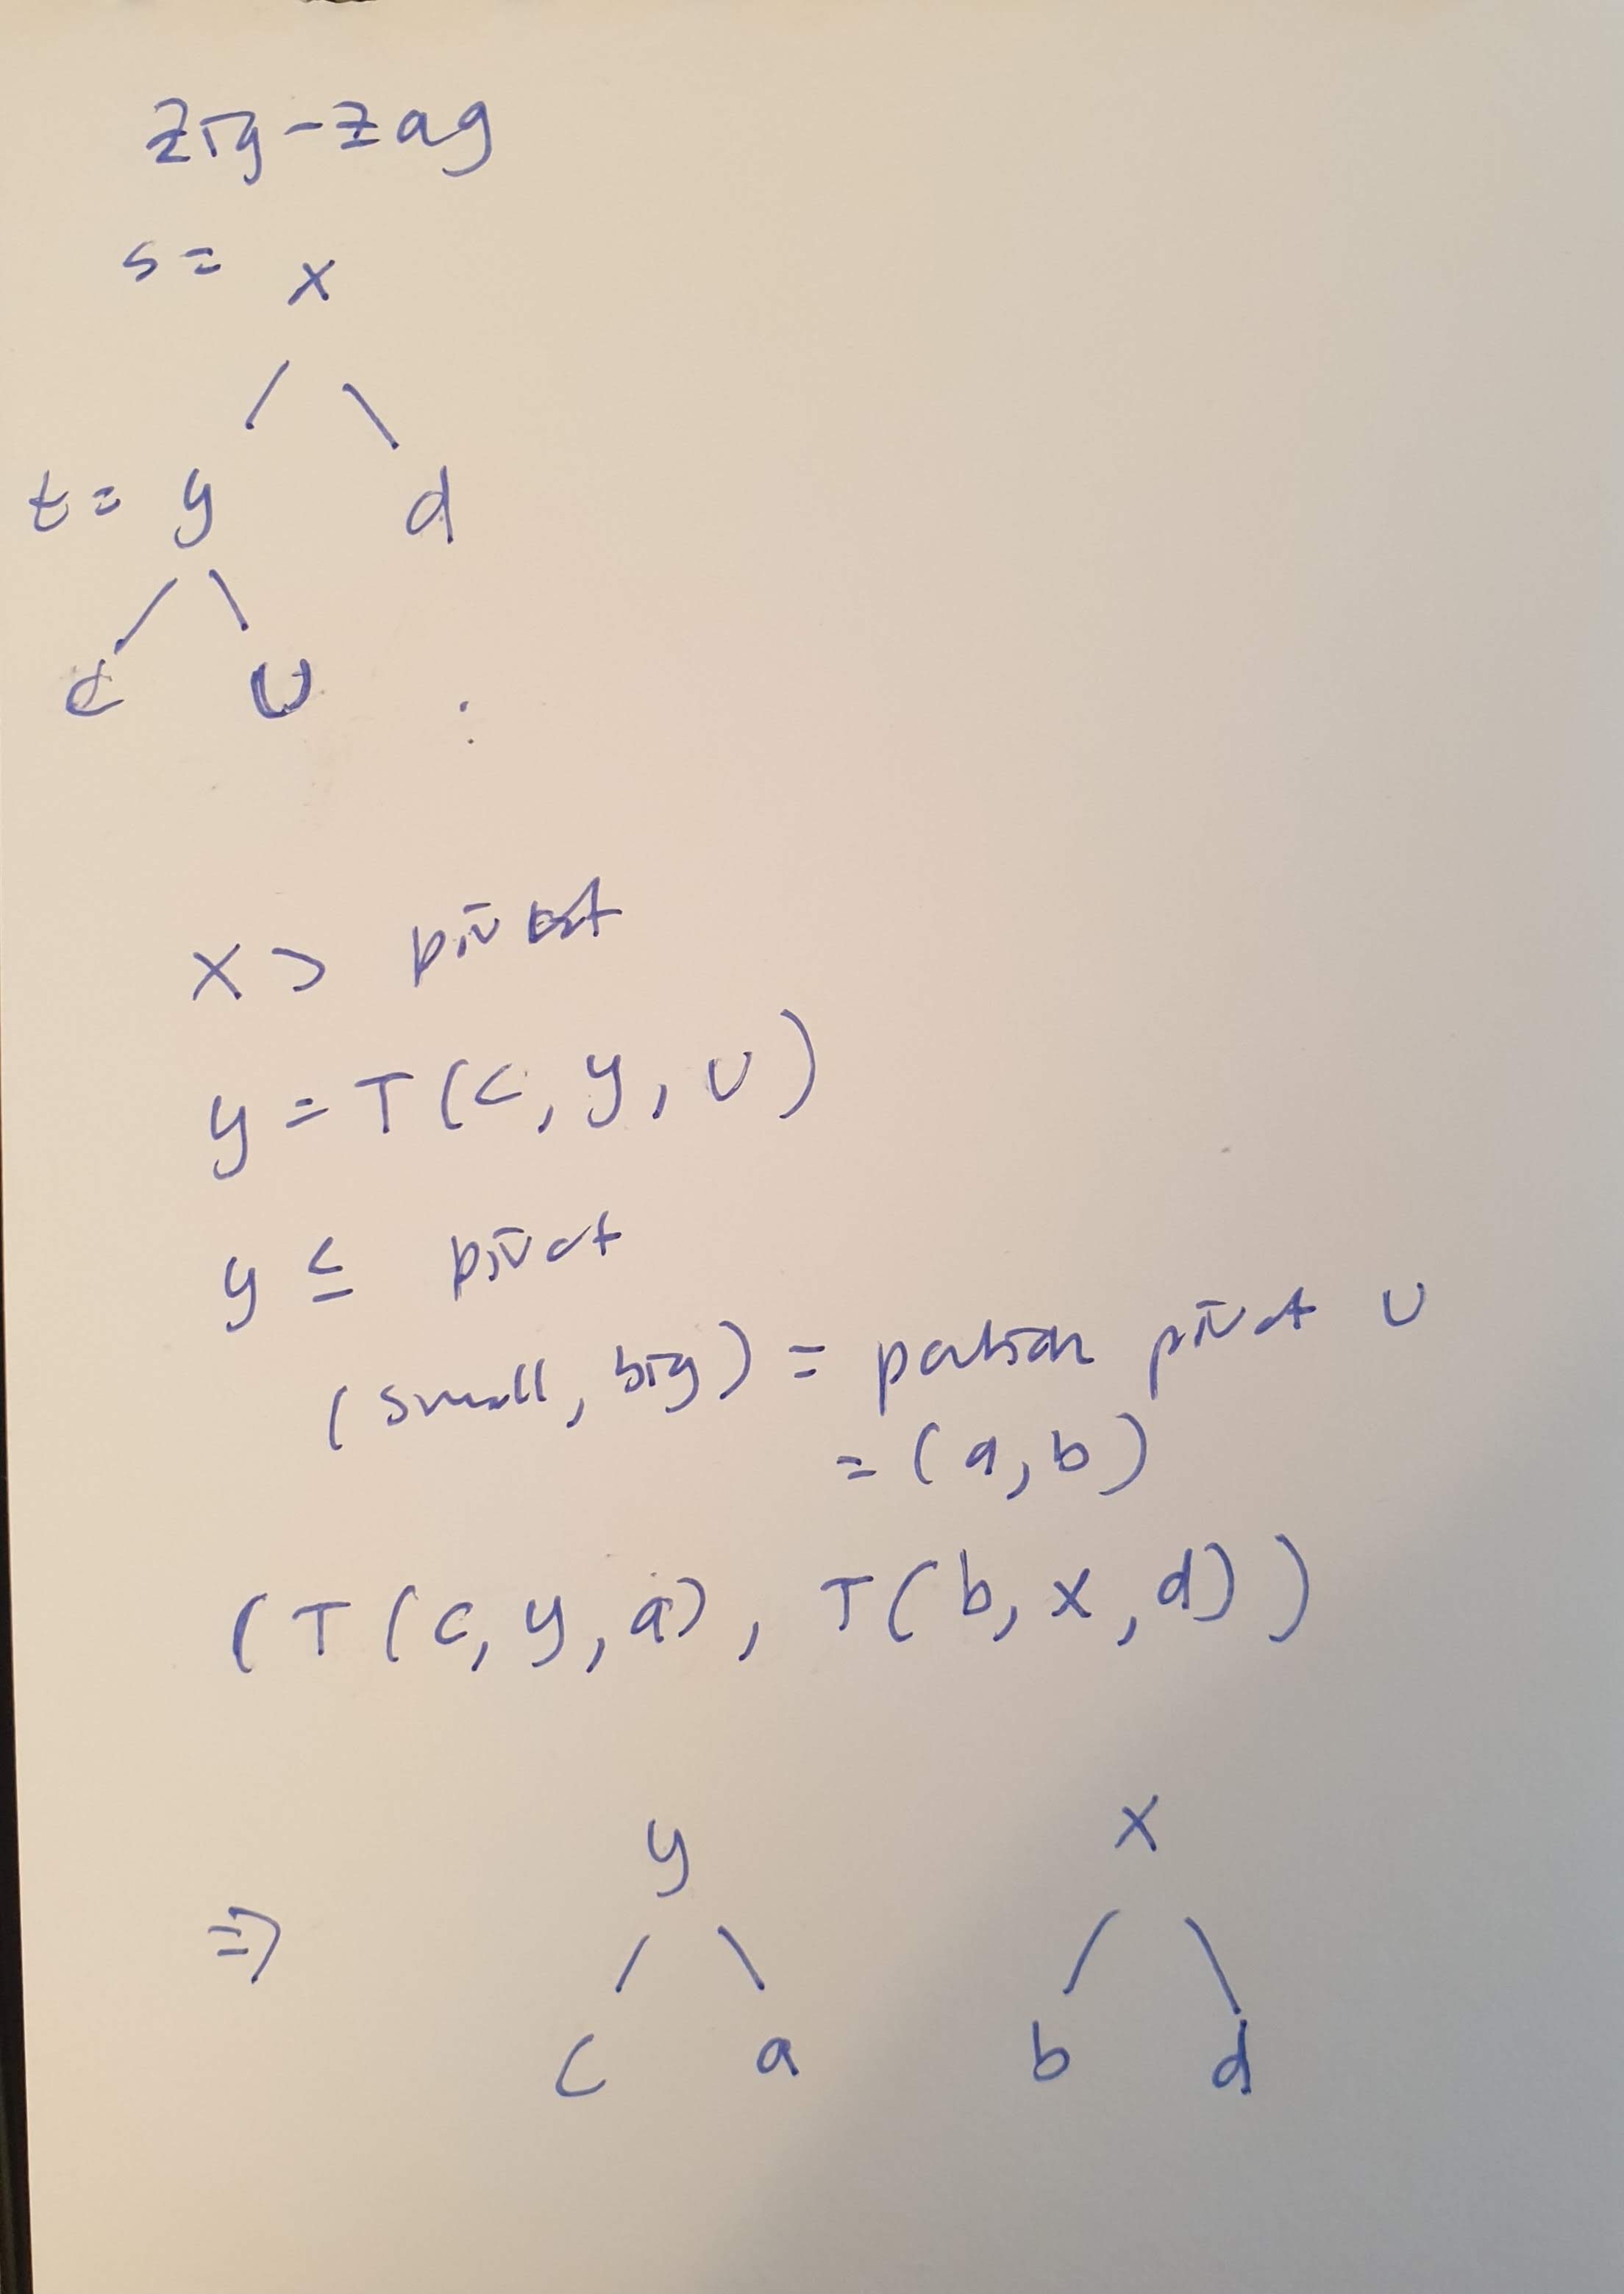 zig-zag
s = x
t = y d
c u
x > pivot
y = T(c, y, u)
y ≤ pivot
(small, big) = partition pivot u
= (a, b)
(T(c, y, a), T(b, x, d))
y x
⇒
c a b d